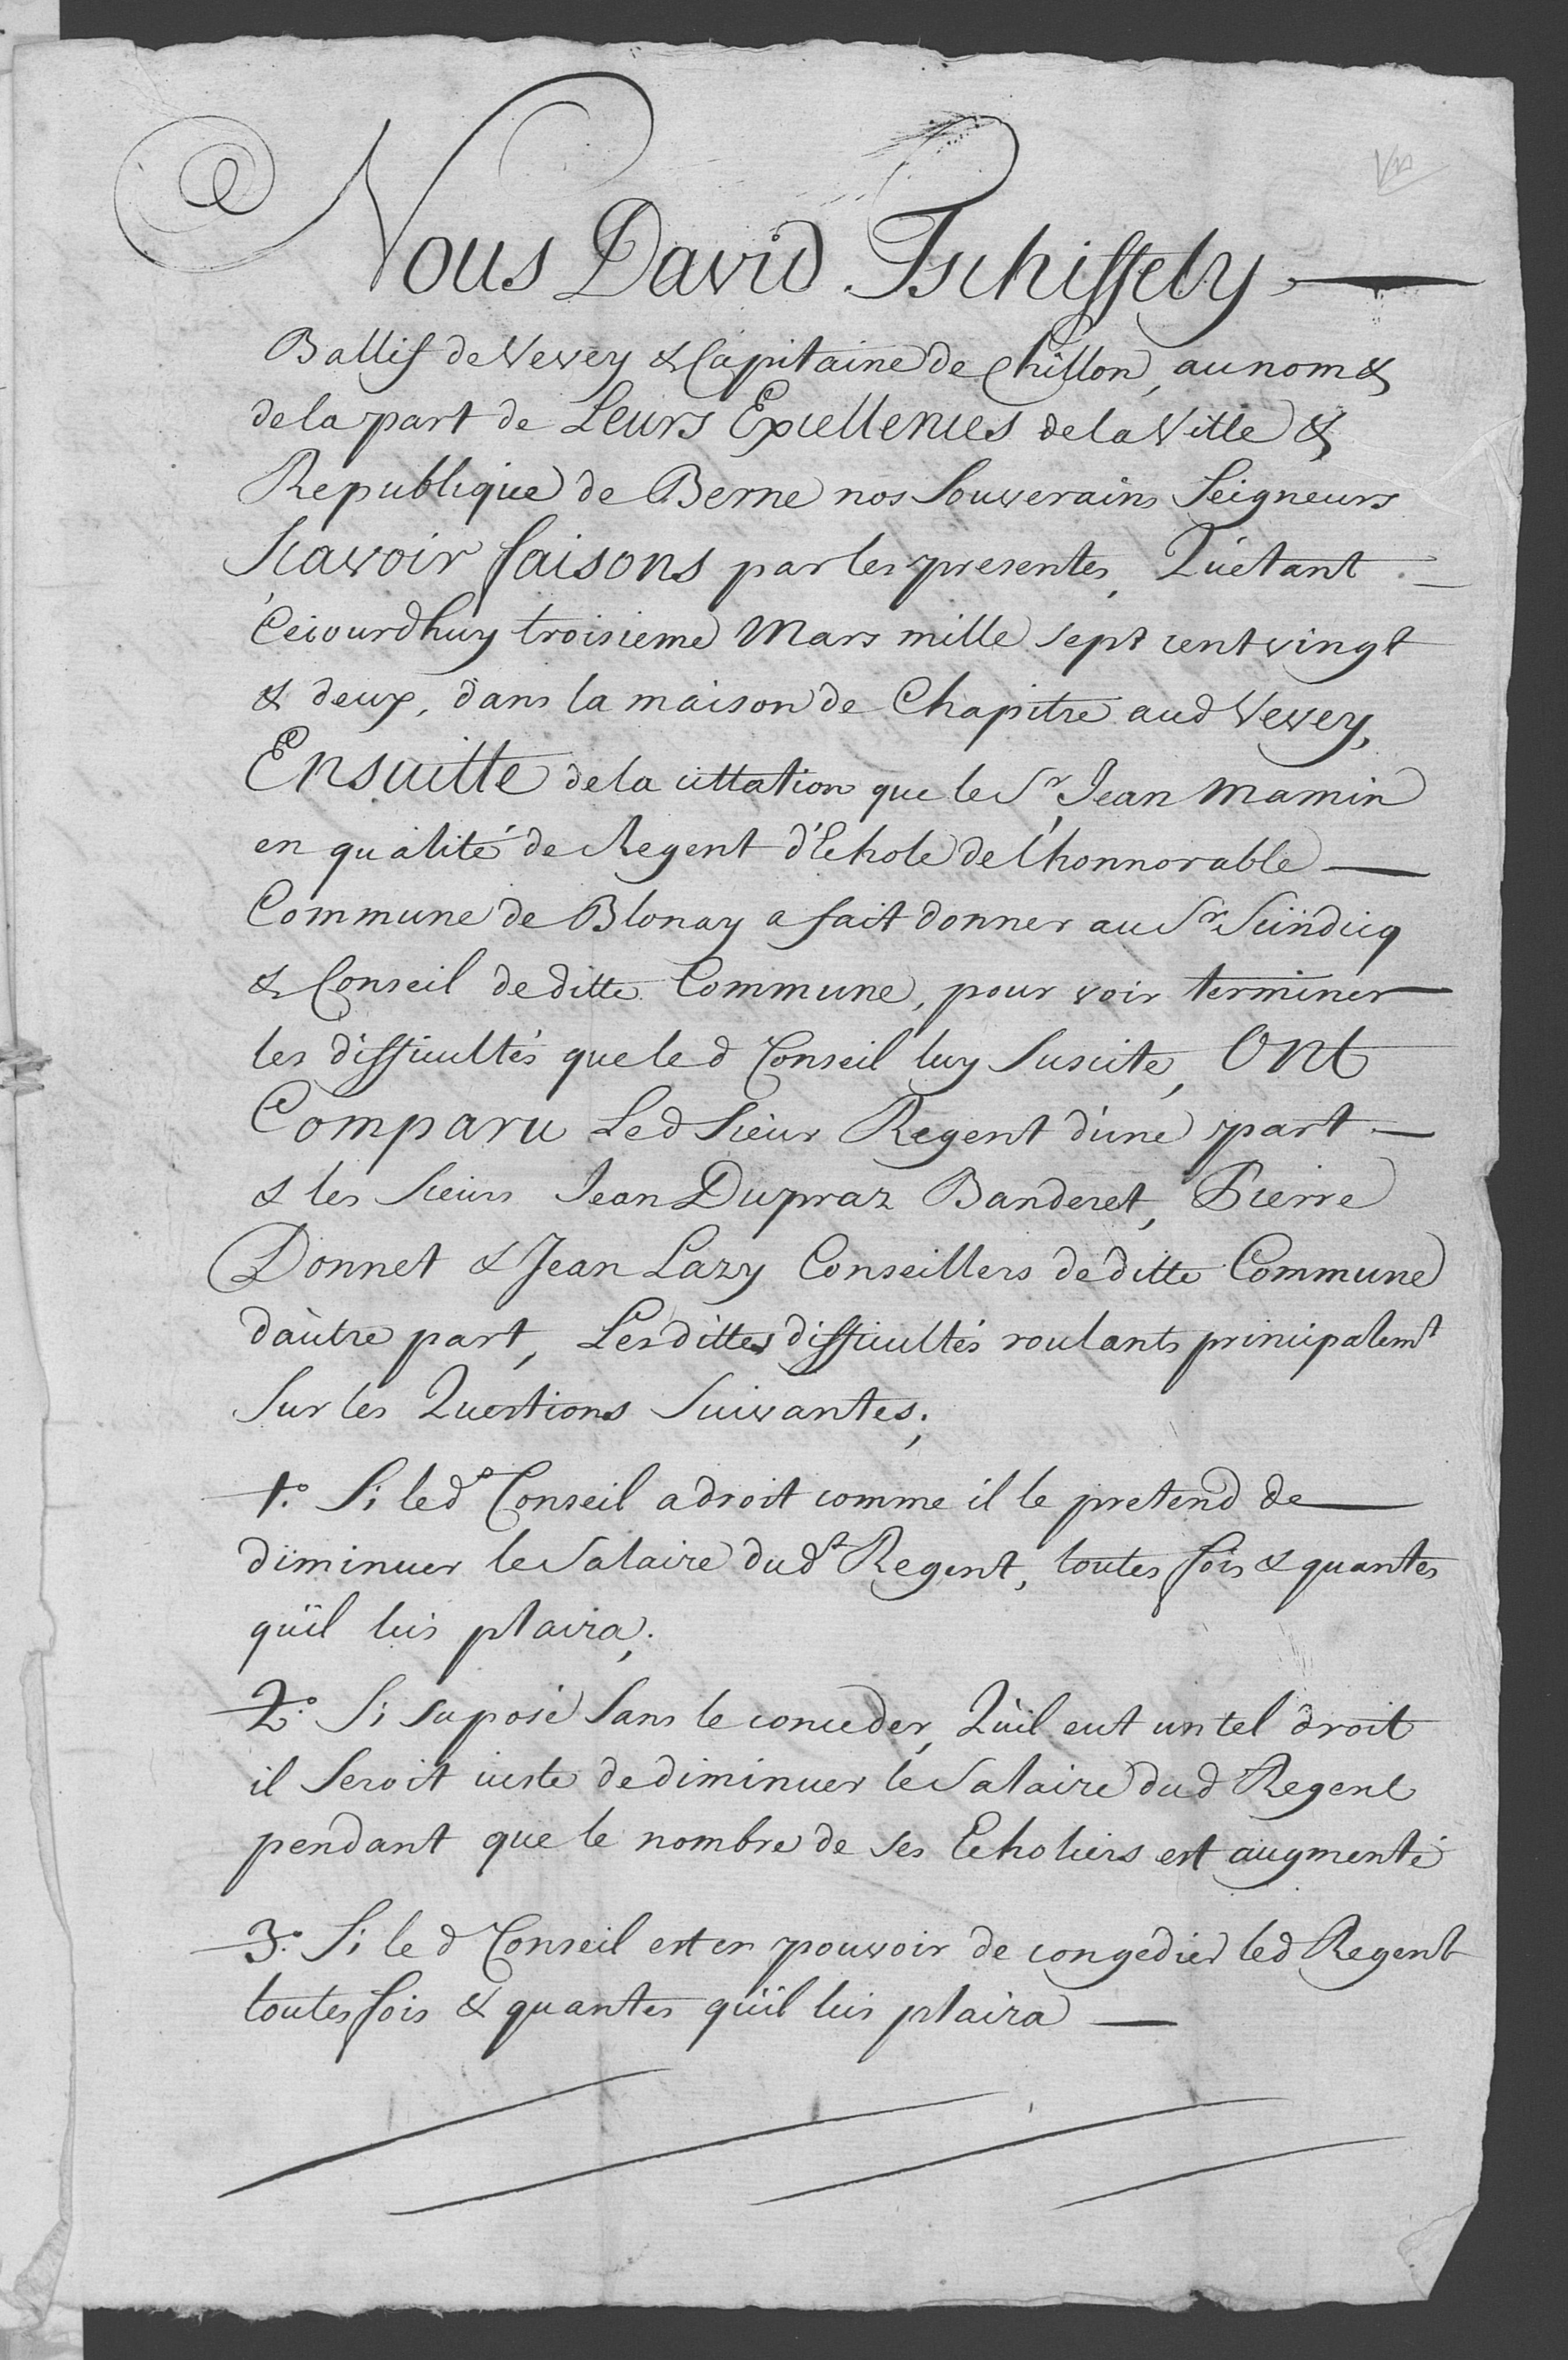 Nous David Tschiffely
Ballif de Vevey & Capitaine de Chillon, au nom &
de la part de Leurs Excellences de la Ville &
Republique de Berne nos Souverains Seigneurs
Scavoir faisons par les presentes, Qu'etant
Cejourdhuy troisieme Mars mille sept cent vingt
& deux, dans la maison de Chapitre aud Vevey,
Ensuitte de la cittation que le Sr Jean Mamin
en qualité de Regent d'Echole de l'honnorable
Commune de Blonay a fait donner au Sr Sindicq
& Conseil de ditte Commune, pour voir terminer
les difficultés que led Conseil luy Suscite, Ont
Comparu Led Sieur Regent d'une part
& les Sieurs Jean Dupraz Banderet, Pierre
Bonnet & Jean Lazy Conseillers de ditte Commune
d'autre part, Lesdittes difficultés roulants principalemt
Sur les Questions Suivantes;
1.º Si led Conseil a droit comme il le pretend de
diminuer le Salaire dudt Regent, toutes fois & quantes
qu'il luis plaira;
2.º Si suposé Sans le conceder, Qu'il eut un tel droit
il Seroit juste de diminuer le Salaire dud Regent
pendant que le nombre de ses Echoliers est augmenté
3.º Si led Conseil est en pouvoir de congedier led Regent
toutes fois & quantes qu'il luis plaira